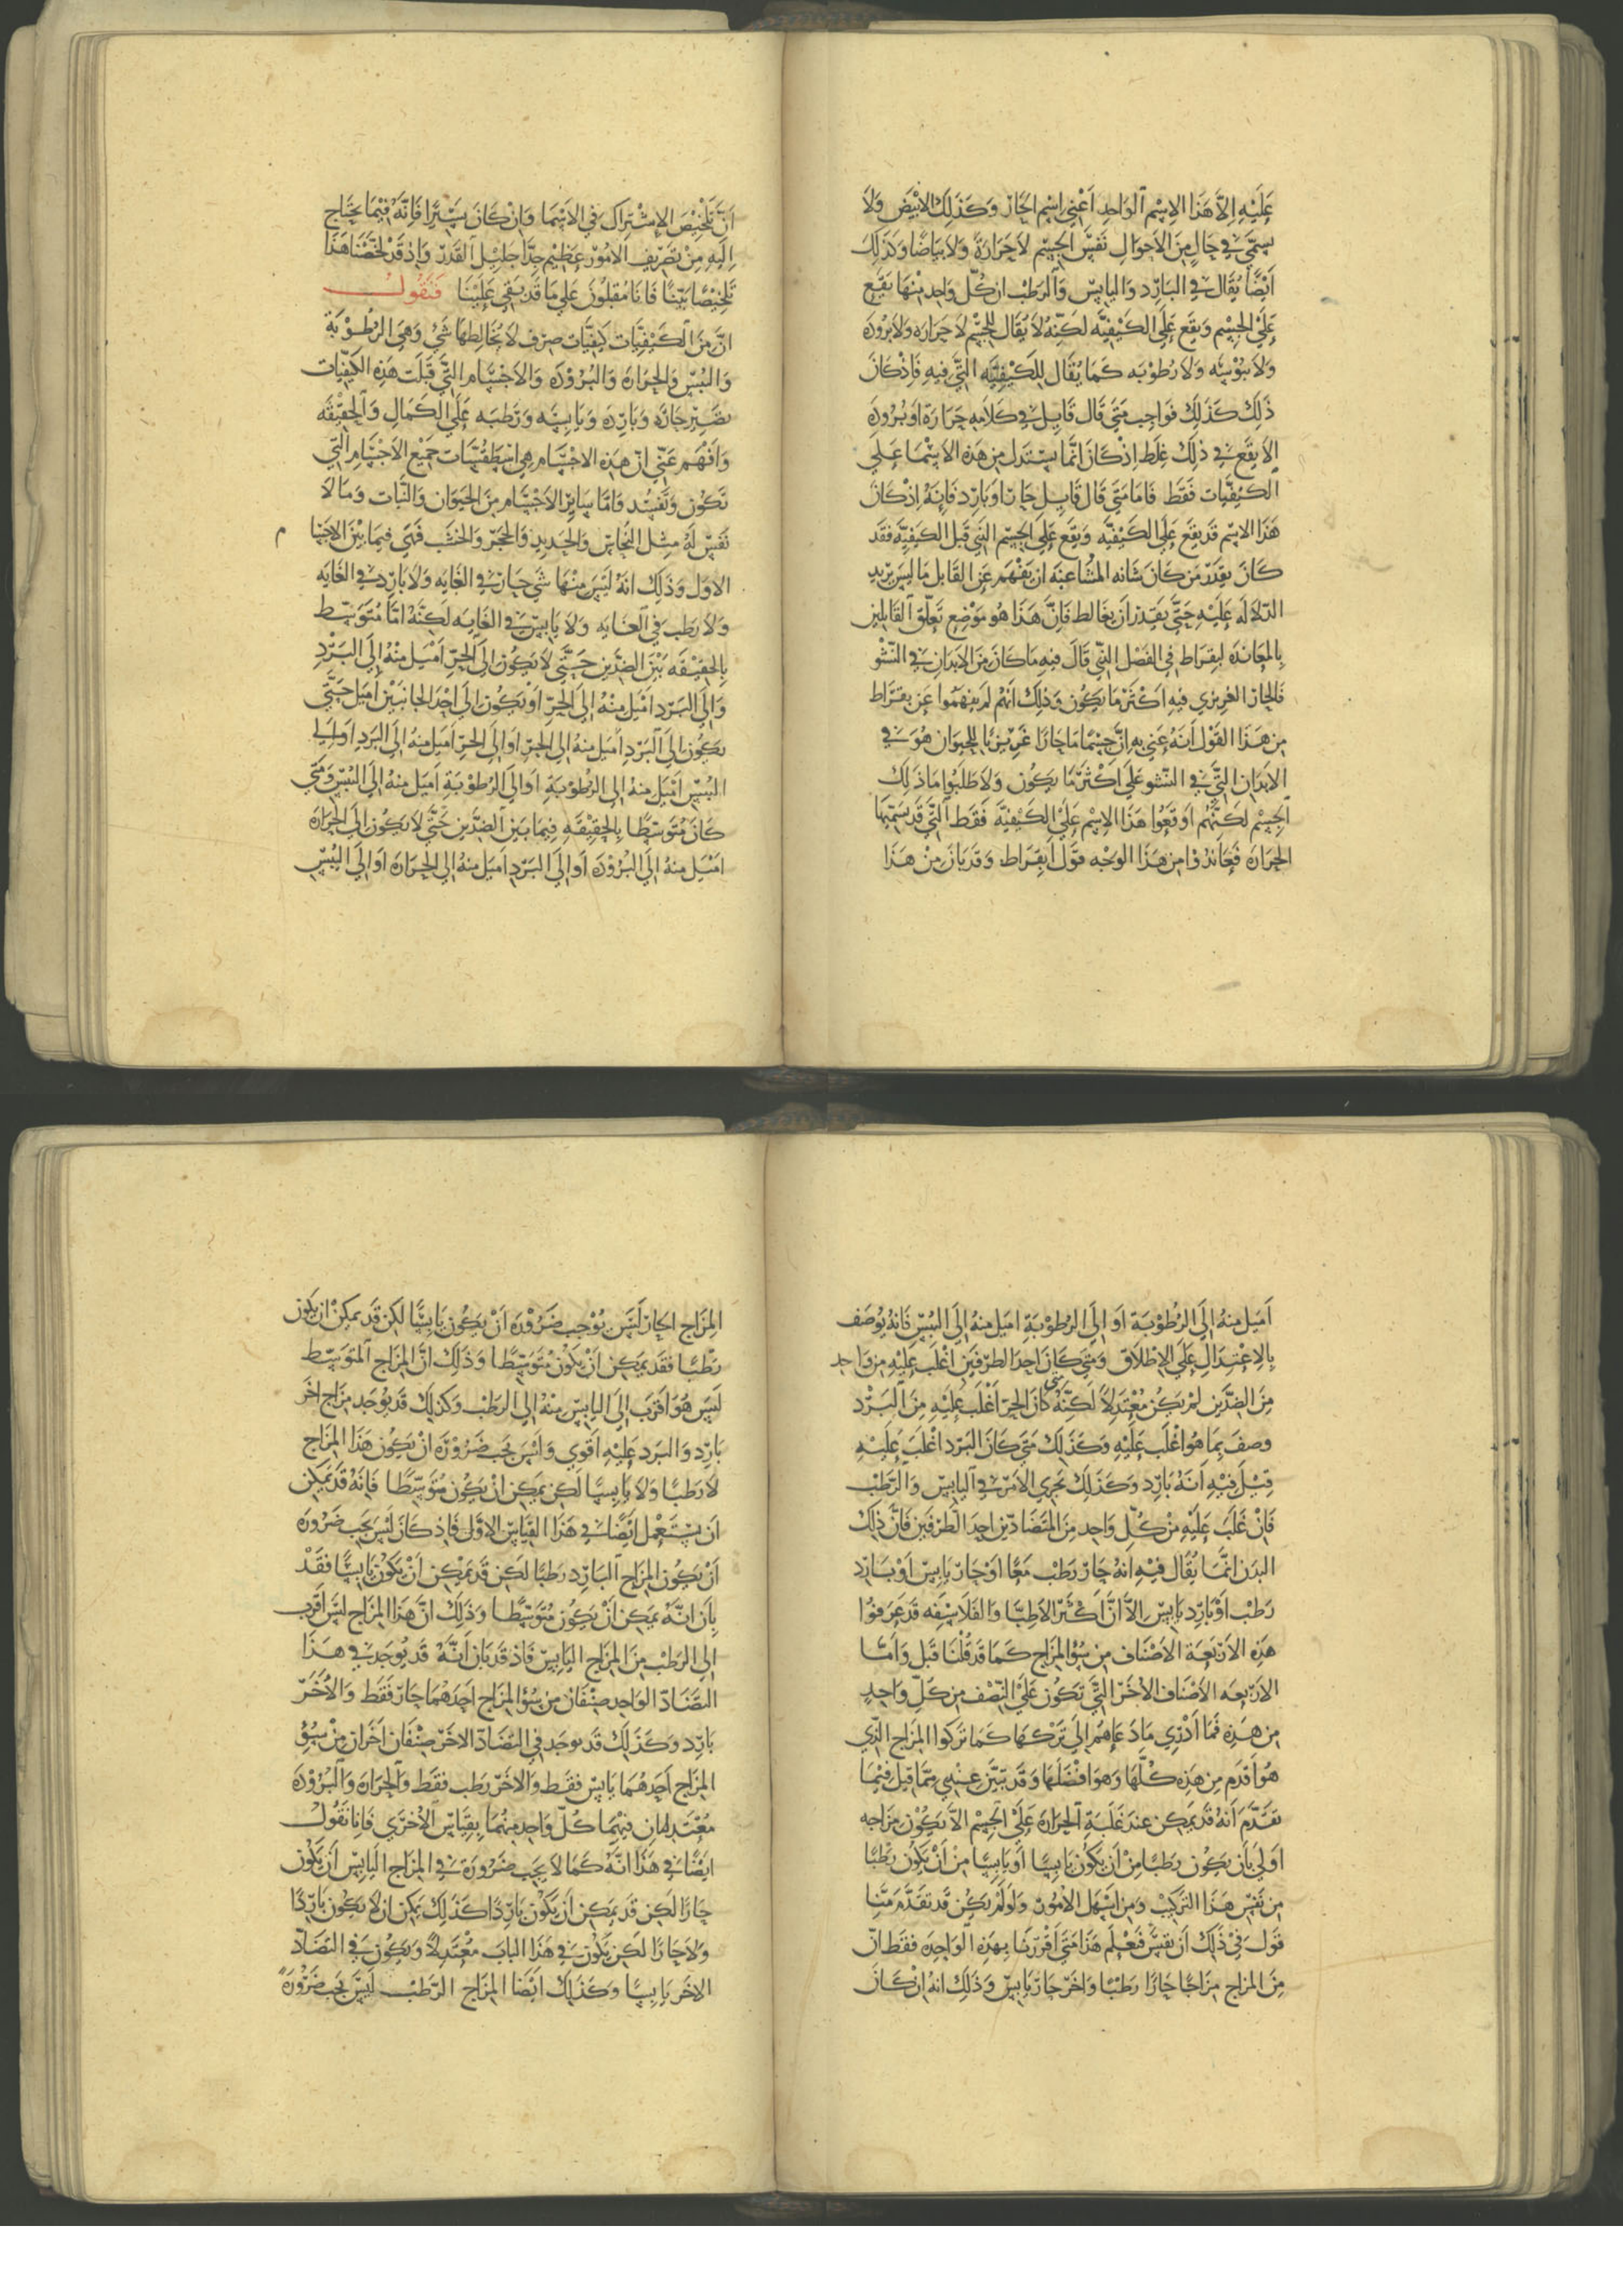 عليه الا هذا الاسم الواحد اعني اسم الحار وكذلك الابيض ولا
يسمي في حال من الاحوال نفس الجسم لا حرارة ولا بياضا وكذلك
ايضا يقال في البارد واليابس والرطب ان كل واحد منها يقع
علي الجسم ويقع علي الكيفيه لكنه لا يقال للجسم لا حراره ولا بروده
ولا يبوسه ولا رطوبه كما يقال للكيفيه التي فيه فاذ كان
ذلك كذلك فواجب متي قال قايل في كلامه حرارة او بروده
الا يقع في ذلك غلط اذ كان انما يستدل من هذه الاسما علي
الكيفيات فقط فاما متي قال قايل حار او بارد فانه اذ كان
هذا الاسم قد يقع علي الكيفيه ويقع علي الجسم الذي قبل الكيفيه فقد
كان يقدر من كان شانه المشاغبه ان يفهم عن القايل ما ليس يريد
الدلاله عليه حتي يقدر ان يغالط فان هذا هو موضع تعلق القايلين
بالمعانده لبقراط في الفصل الذي قال فيه ما كان من الابدان في النشو
فالحار الغريزي فيه اكثر ما يكون وذلك انهم لم يفهموا عن بقراط
من هذا القول انه عني به ان جسما ما حارا غريزيا للحيوان هو في
الابدان التي في النشو علي اكثر ما يكون ولا طلبوا ما ذلك
الجسم لكنهم اوقعوا هذا الاسم علي الكيفية فقط التي قد يسميها
الحراره فعاندوا من هذا الوجه قول ابقراط وقد بان من هذا
ان تلخيص الاشتراك في الاسما وان كان يسيرا فانه فيما يحتاج
اليه من تصريف الامور عظيم جدا جليل القدر واذ قد لخصنا هذا
تلخيصا بينا فانا مقبلون علي ما قد بقي علينا فنقول
ان من الكيفيات كيفيات صرف لا يخالطها شي وهي الرطوبة
واليبس والحراره والبروده والاجسام التي قبلت هذه الكيفيات
تصير حاره وبارده ويابسه ورطبه علي الكمال والحقيقه
وافهم عني ان هذه الاجسام هي اسطقسات جميع الاجسام التي
تكون وتفسد واما ساير الاجسام من الحيوان والنبات وما لا
نفس له مثل النحاس والحديد والحجر والخشب فهي فيما بين الاجسا م
الاول وذلك انه ليس منها شي حار في الغايه ولا بارد في الغايه
ولا رطب في الغايه ولا يابس في الغايه لكنه اما متوسط
بالحقيقه بين الضدين حتي لا يكون الي الحر اميل منه الي البرد
والي البرد اميل منه الي الحر او يكون الي احد الجانبين اميل حتي
يكون الي البرد اميل منه الي الحر او الي الحر اميل منه الي البرد او الي
اليبس اميل منه الي الرطوبة او الي الرطوبة اميل منه الي اليبس ومتي
كان متوسطا بالحقيقه فيما بين الضدين حتي لا يكون الي الحراره
اميل منه الي البروده او الي البرد اميل منه الي الحراره او الي اليبس
اميل منه الي الرطوبة او الي الرطوبة اميل منه الي اليبس فانه يوصف
بالاعتدال علي الاطلاق ومتي كان احد الطرفين اغلب عليه من واحد
من الضدين لم يكن معتدلا لكنه متي كان الحر اغلب عليه من البرد
وصف بما هو اغلب عليه وكذلك متي كان البرد اغلب عليه
قيل فيه انه بارد وكذلك يجري الامر في اليابس والرطب
فان غلب عليه من كل واحد من المتضادين احد الطرفين فان ذلك
البدن انما يقال فيه انه حار رطب معا او حار يابس او بارد
رطب او بارد يابس الا ان اكثر الاطبا والفلاسفه قد عرفوا
هذه الاربعة الاصناف من سؤ المزاج كما قد قلنا قبل واما
الاربعه الاصناف الاخر التي تكون علي النصف من كل واحد
من هذه فما ادري ماذ عاهم الي تركها كما تركوا المزاج الذي
هو اقدم من هذه كلها وهو افضلها وقد تبين عندي مما قيل فيما
تقدم انه قد يمكن عند غلبة الحرارة علي الجسم الا يكون مزاجه
اولي بان يكون رطبا من ان يكون يابسا او يابسا من ان يكون رطبا
من نفس هذا التركيب ومن اسهل الامور ولو لم يكن قد تقدم منا
قول في ذلك ان نفس فعلم هذا متي اقررنا بهذه الواحده فقط ان
من المزاج مزاجا حارا رطبا واخر حار يابس وذلك انه ان كان
المزاج الحار ليس يوجب ضرورة ان يكون يابسا لكن قد يمكن ان يكون
رطبا فقد يمكن ان يكون متوسطا وذلك ان المزاج المتوسط
ليس هو اقرب الي اليابس منه الي الرطب وكذلك قد يوجد مزاج اخر
بارد والبرد عليه اقوي وليس يجب ضرورة ان يكون هذا المزاج
لا رطبا ولا يابسا لكن يمكن ان يكون متوسطا فانه قد يمكن
ان يستعمل ايضا في هذا القياس الاول فاذ كان ليس يجب ضروره
ان يكون المزاج البارد رطبا لكن قد يمكن ان يكون يابسا فقد
بان انه يمكن ان يكون متوسطا وذلك ان هذا المزاج ليس اقرب
الي الرطب من المزاج اليابس فاذ قد بان انه قد يوجد في هذا
التضاد الواحد صنفان من سؤ المزاج احدهما حار فقط والاخر
بارد وكذلك قد يوجد في التضاد الاخر صنفان اخران من سؤ
المزاج احدهما يابس فقط والاخر رطب فقط والحراره والبروده
معتدلان فيهما كل واحد منهما بقياس الاخري فانا نقول
ايضا في هذا انه كما لا يجب ضرورة في المزاج اليابس ان يكون
حارا لكن قد يمكن ان يكون باردا كذلك يمكن ان لا يكون باردا
ولا حارا لكن يكون في هذا الباب معتدلا ويكون في التضاد
الاخر يابسا وكذلك ايضا المزاج الرطب ليس يجب ضرورة